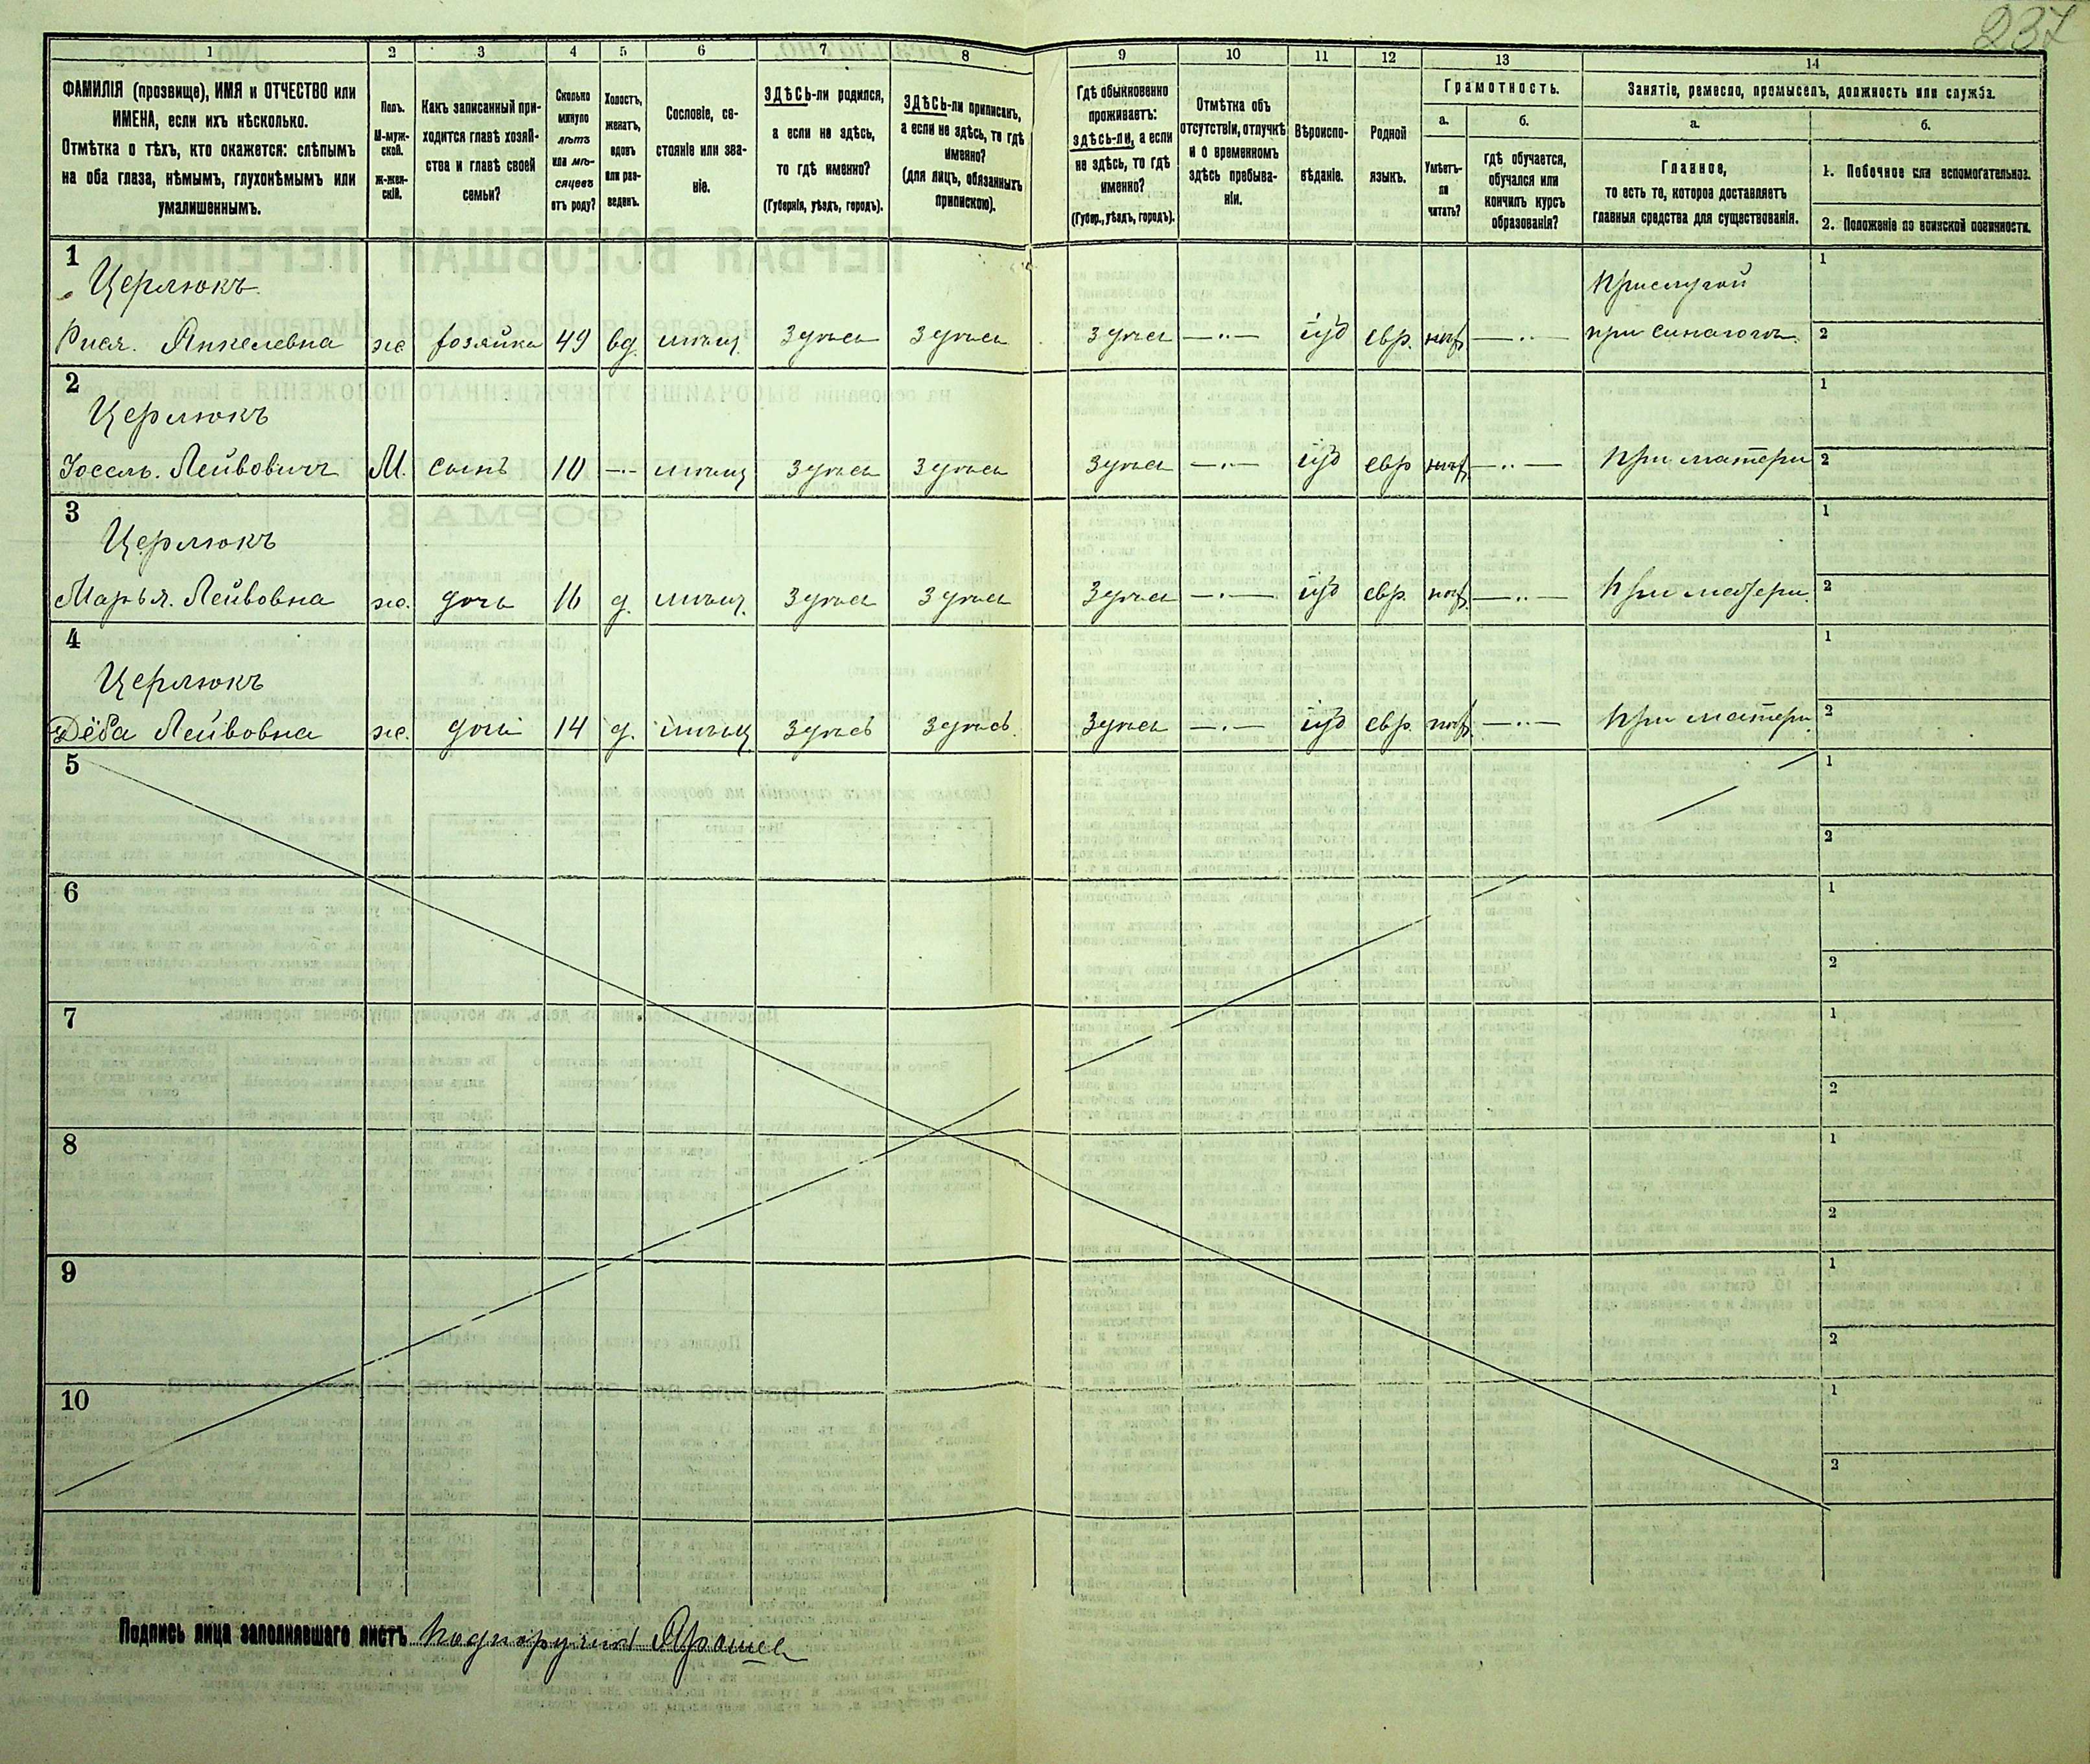 237
1
2
3
4
5
6
7
8
9
10
11
12
13
14
ФАМИЛІЯ (прозвище), ИМЯ и ОТЧЕСТВО или
ИМЕНА, если ихъ нѣсколько.
Отмѣтка о тѣхъ, кто окажется: слѣпымъ
на оба глаза, нѣмымъ, глухонѣмымъ или
умалишеннымъ.
Полъ.
М-муж-
ской.
Ж-жен-
скій.
Какъ записанный при-
ходится главѣ хозяй-
ства и главѣ своей
семьи?
Сколько
минуло
лѣтъ
или мѣ-
сяцевъ
отъ роду?
Холостъ,
женатъ,
вдовъ
или раз-
веденъ.
Сословіе, со-
стояніе или зва-
ніе.
ЗДѢСЬ-ли родился,
а если не здѣсь,
то гдѣ именно?
(Губернія, уѣздъ, городъ).
ЗДѢСЬ-ли приписанъ,
а если не здѣсь, то гдѣ
именно?
(для лицъ, обязанныхъ
припискою).
Гдѣ обыкновенно
проживаетъ:
здѣсь-ли, а если
не здѣсь, то гдѣ
именно?
(Губер., уѣздъ, городъ).
Отмѣтка объ
отсутствіи, отлучкѣ
и о временномъ
здѣсь пребыва-
ніи.
Вѣроиспо-
вѣданіе.
Родной
языкъ.
Грамотность.
а.
Умѣетъ-
ли
читать?
б.
гдѣ обучается,
обучался или
кончилъ курсъ
образованія?
Занятіе, ремесло, промыселъ, должность или служба.
а.
Главное,
то есть то, которое доставляетъ
главныя средства для существованія.
б.
1. Побочное или вспомогательное.
2. Положеніе по воинской повинности.
1
Церлюкъ
Прислугой
1
Рися. Янкелевна же хозяйка 49 вд. мѣщ. Здѣсь Здѣсь Здѣсь —··— іуд евр. нѣт —··— при синагогѣ. 2
2
Церлюкъ
1
Іосель. Лейбовичъ М. сынъ 10 —·— мѣщ Здѣсь Здѣсь Здѣсь —··— іуд евр нѣт —··— При матери 2
3
Церлюкъ
1
Марья. Лейбовна же. дочь 16 д. мѣщ. Здѣсь Здѣсь Здѣсь —·— іуд евр. нѣт —··— При матери. 2
4
Церлюкъ
1
Дёба Лейбовна же. дочь 14 д. мѣщ Здѣсь Здѣсь. Здѣсь —·— іуд евр. нѣт —··— При матери. 2
5
1
2
6
1
2
7
1
2
8
1
2
9
1
2
10
1
2
Подпись лица заполнявшаго листъ Подпоручикъ